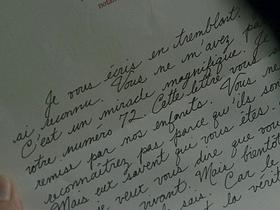 nota
Je vous écris en tremblant.
ai reconnu. Vous ne m'avez pas
C'est un miracle magnifique. Je
votre numéro 72. Cette lettre vous
remise par nos enfants. Vous ne
reconnaîtrez pas parce qu'ils son
Mais eux savent que vous êtes
je veux vous dire que vous
vivant. Mais bientôt
sais. Car le
la vérit